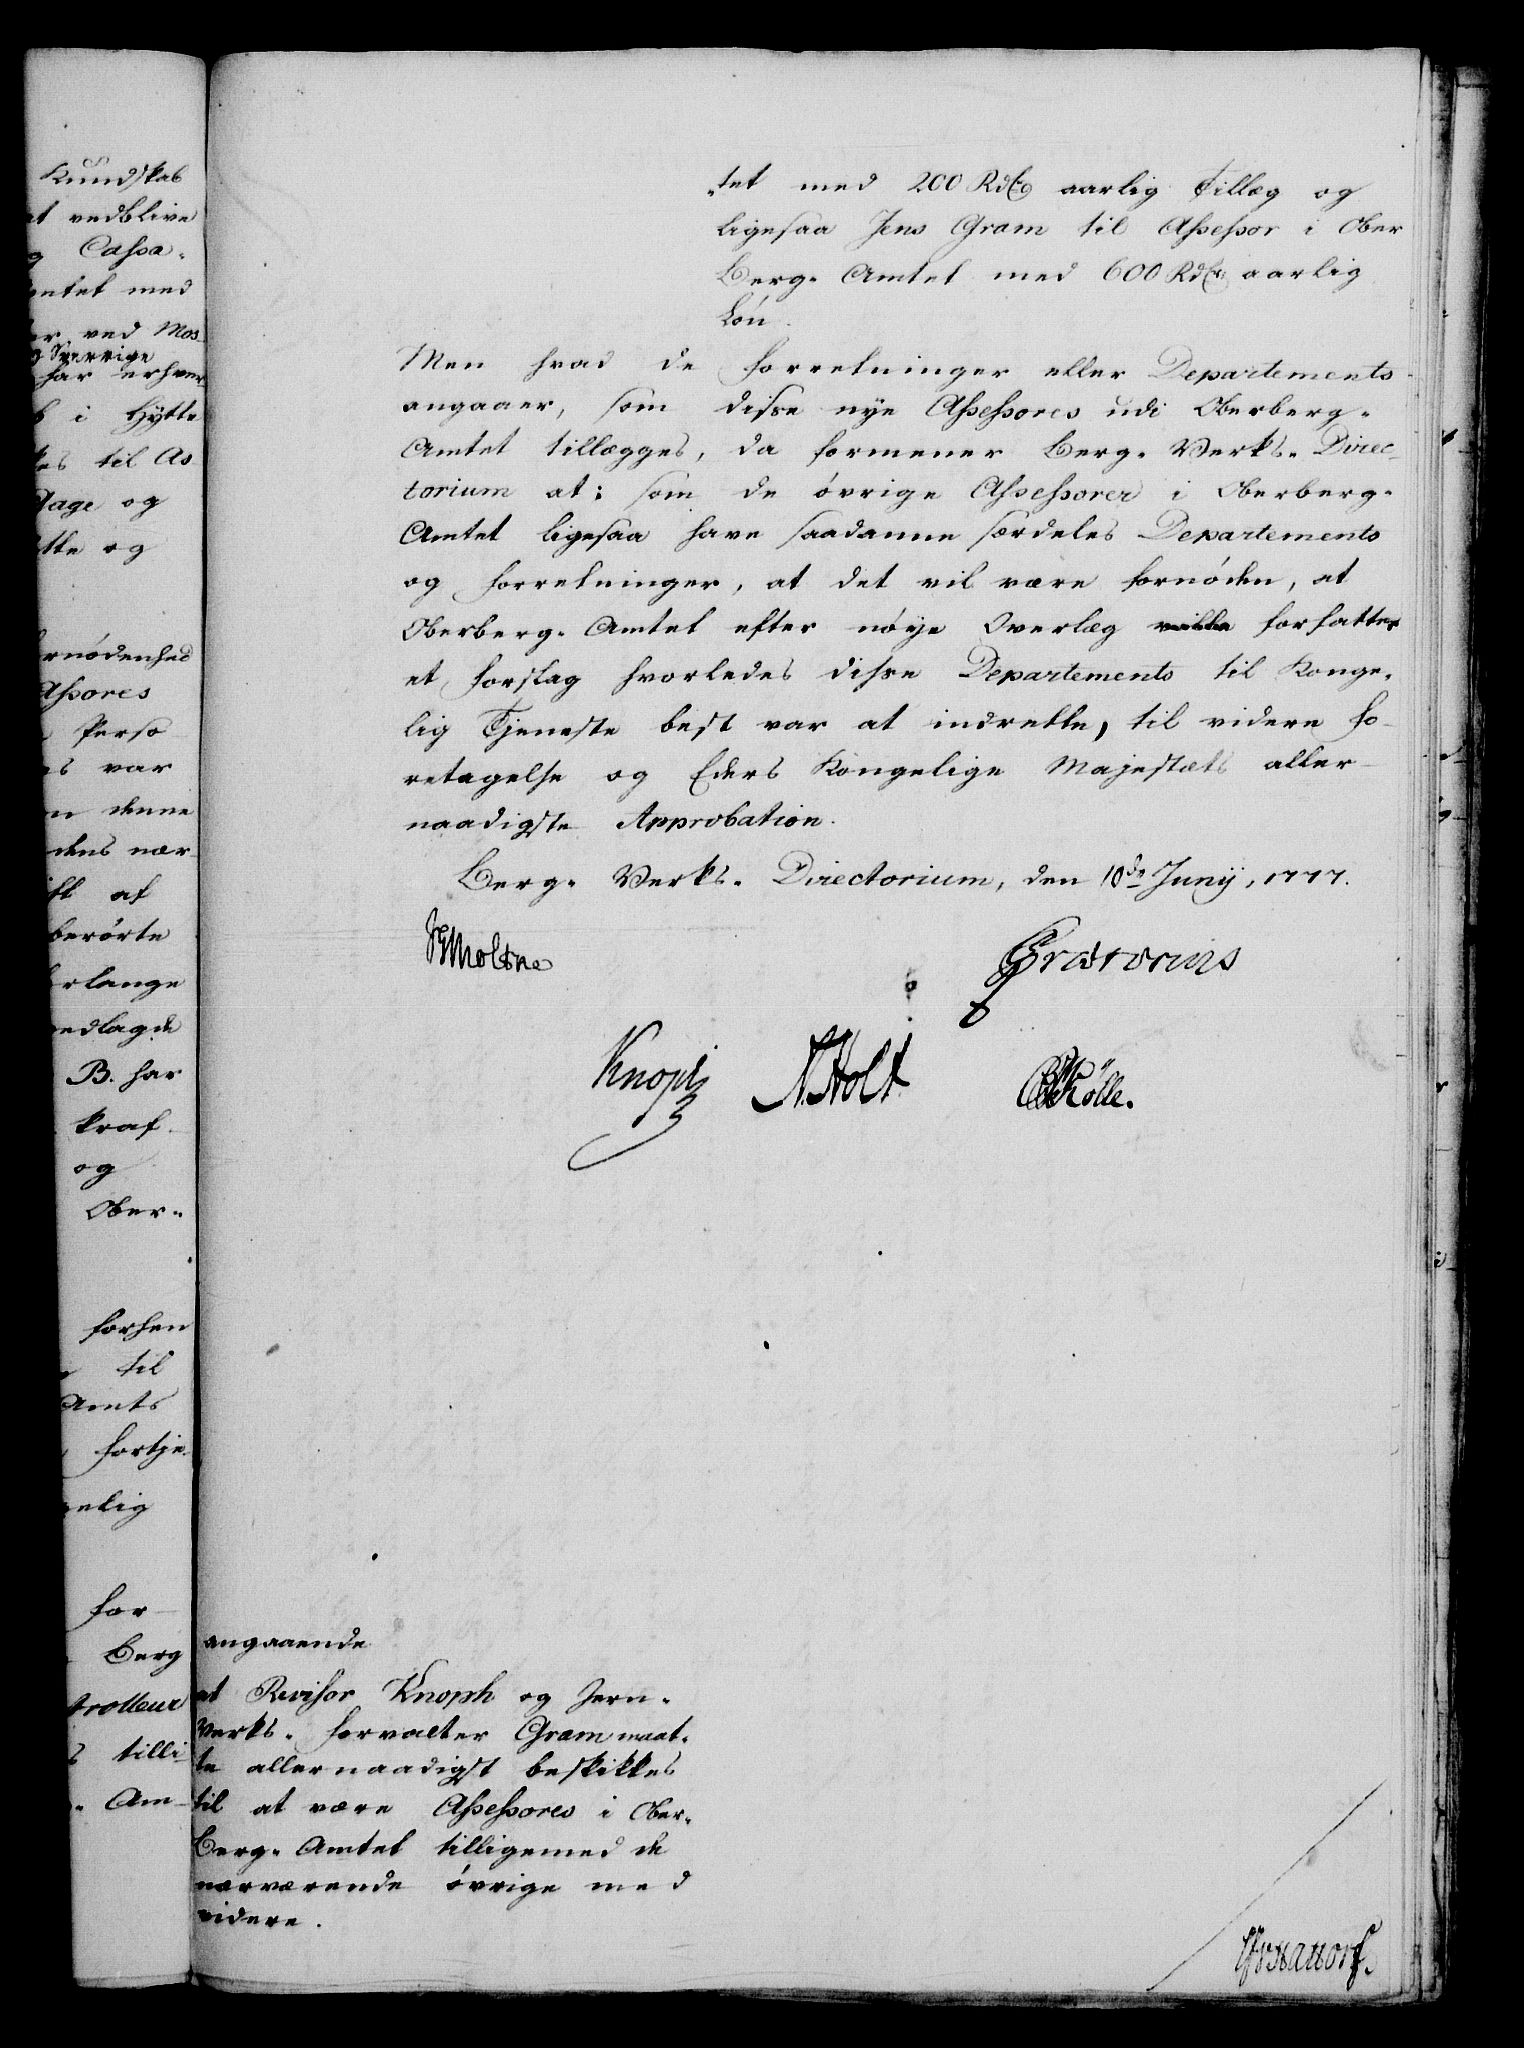 Kundskab
at vedblive
og Cassa-
Amtet med
ved Mos-
og Sverrige
har erhver
i Hytte
til As-
og
og
ornødenhed
Assessores
Perso
var
denne
dens nær-
af
berørte
erlange
vedlagde
B. har
kraf-
og
Ober-
forhen
til
Amts
fortje-
for-
Berg
trolleur
tilli-
Am-
-tet med 200 Rdlr aarlig Tillæg og
ligesaa Jens Gram til Assessor i Ober
Berg- Amtet med 600 Rdlr aarlig
Løn.
Men hvad de Forretninger eller Departements
angaaer, som disse nye Assessores udi Oberberg-
Amtet tillægges, da formener Berg- Verks- Direc-
torium at: som de øvrige Assessorer i Oberberg-
Amtet ligesaa have saadanne særdeles Departements
og Forretninger, at det vil være fornøden, at
Oberberg- Amtet efter nøye Overlæg forfatter
et Forslag hvorledes disse Departements til Konge-
lig Tjeneste best var at indrette, til videre Fo-
retagelse og Eders Kongelige Majestæts aller-
naadigste Approbation.
Berg- Verks- Directorium, den 10de Junij, 1777.
Moltke
Prætorius
Knoph
N. Holt
Rølle.
angaaende
at Revisor Knoph og Jern-
Verks- Forvalter Gram maat-
te allernaadigst beskikkes
til at være Assessores i Ober-
Berg- Amtet tilligemed de
nærværende øvrige med
videre.